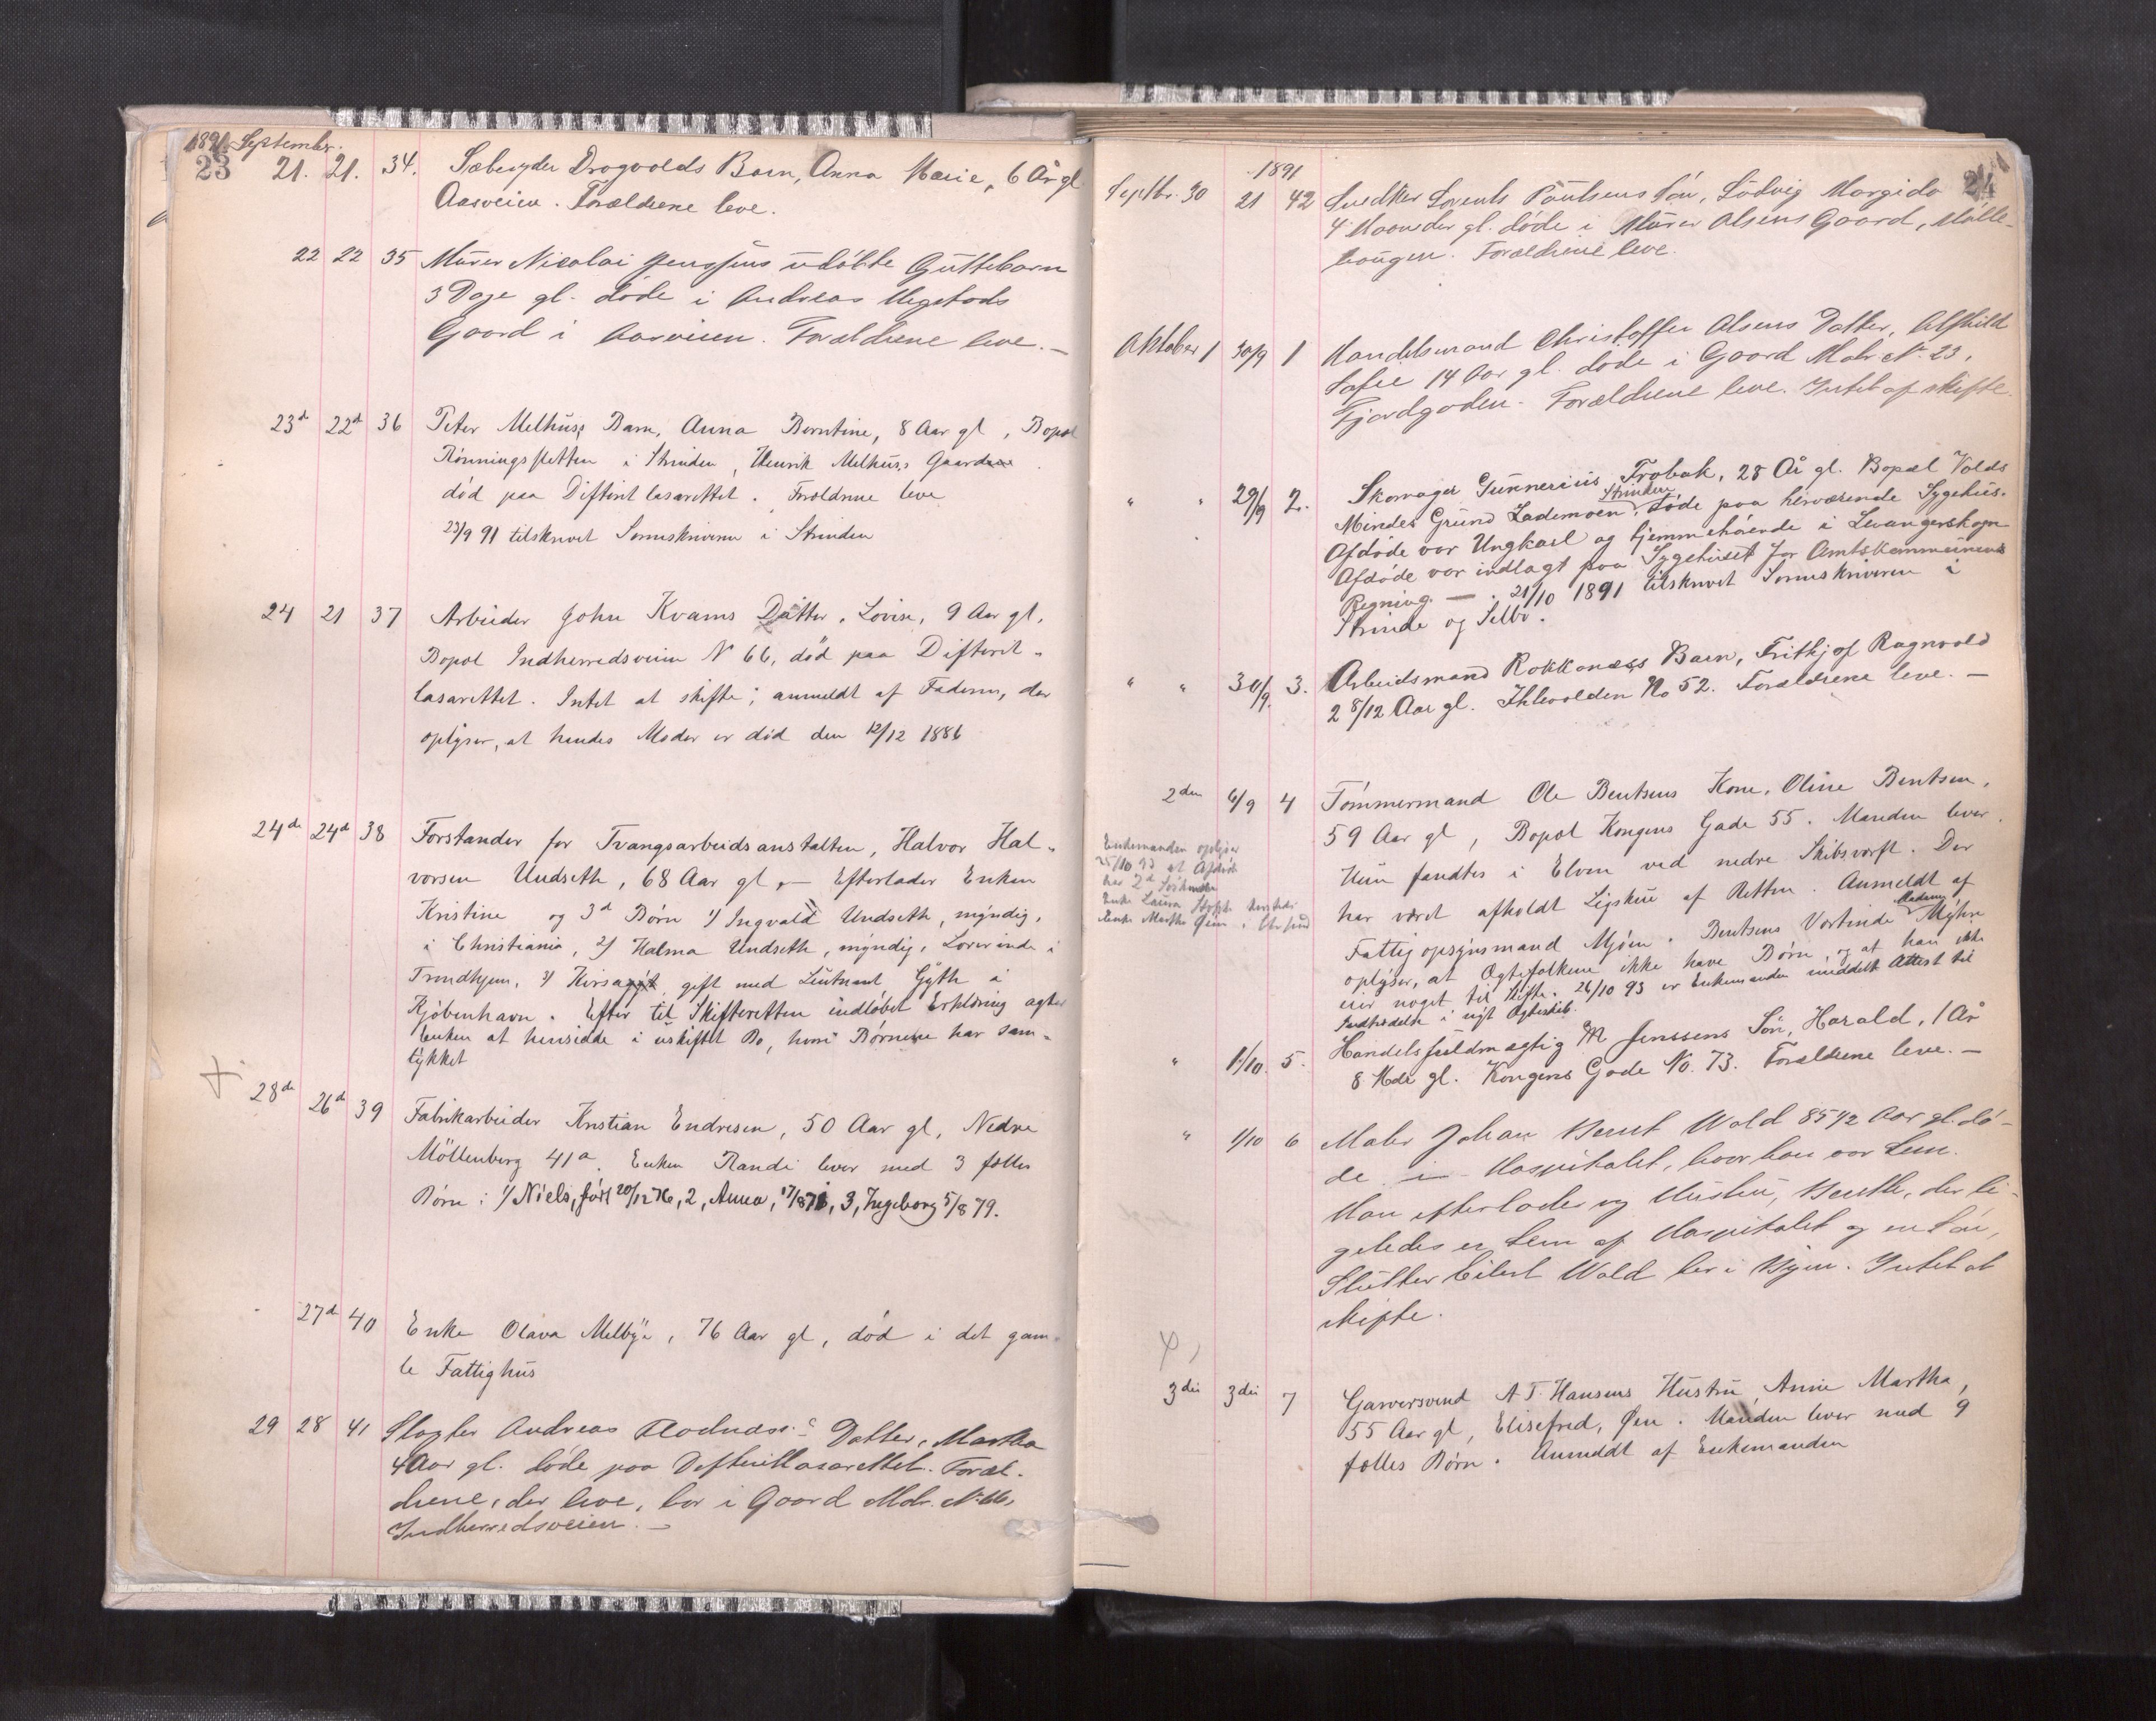 1891. September.
23 21. 21. 34. Sæbesyder Dragvolds Barn, Anna Marie, 6 År gl
Aasveien. Forældrene leve.
22 22 35 Murer Nicolai Jenssens udöbte Guttebarn
3 Dage gl. døde i Andreas Megstads
Gaard i Aasveien. Forældrene leve. —
23d 22d 36 Peter Melhuss Barn, Anna Berntine, 8 Aar gl, Bopæl
Rönningsletten i Strinden, Henrik Melhuss Gaard
död paa Difteritlasarettet. Forældrene leve
23/9 91 tilskrevet Sorenskriveren i Strinden
24 21 37 Arbeider John Kvams Datter, Lovise, 9 Aar gl,
Bopæl Indherredsveien N 66, död paa Difterit-
lasarettet. Intet at skifte; anmeldt af Faderen, der
oplyser, at hendes Moder er död den 12/12 1886
24de 24d 38 Forstander for Tvangsarbeidsanstalten, Halvor Hal-
vorsen Undseth, 68 Aar gl, — Efterlader Enken
Kristine og 3d Börn 1) Ingvald Undseth, myndig,
i Christiania, 2) Halma Undseth, myndig, Lærerinde i
Trondhjem, 3) Kirsa gift med Lieutnant Gyth i
Kjöbenhavn. Efter til Skifteretten indlöbet Erklæring agter
Enken at hensidde i uskiftet Bo, hvori Börnene har sam-
tykket
28de 26d 39 Fabrikarbeider Kristian Endresen, 50 Aar gl, Nedre
Möllenberg 41a. Enken Randi lever med 3 fælles
Börn: 1) Niels, født 20/12 76, 2, Anna, 17/8 78, 3, Ingeborg 5/8 79.
27de 40 Enke Olava Melbye, 76 Aar gl, död i det gam-
le Fattighus
29 28 41 Slagter Andreas Datter, Martha
4 Aar gl. døde paa Difteritlasarettet. Foræl-
drene, der leve, bor i Gaard Matr. No 66,
Indherredsveien. —
1891 24
Septbr. 30 21 42 Snedker Lorents Paulsens Søn, Ludvig Margido
4 Maaneder gl. døde i Murer Olsens Gaard, Mølle-
bougen. Forældrene leve.
Oktober 1 30/9 1 Handelsmand Christoffer Olsens Datter, Alfhild
Sofie 14 Aar gl. døde i Gaard Matr. No 23,
Fjordgaden. Forældrene leve. Intet at skifte.
" " 29/9 2. Skomager Gunnerius Trøbak, 28 År gl. Bopæl Volds
Strinden
Mindes Grund Lademoen, døde paa herværende Sygehus.
Afdöde var Ungkarl og hjemmehörende i Levangerskogn
Afdöde var indlagt paa Sygehuset for Amtskommunens
Regning. — . 21/10 1891 tilskrevet Sorenskriveren i
Strinde og Selbu.
" " 30/9. 3. Arbeidsmand Rokkonæss Barn, Frithjof Ragnvald
2 8/12 Aar gl. Ihlevolden No 52. Forældrene leve. —
2den 6/9 4 Tömmermand Ole Bentsens Kone, Oline Bentsen,
59 Aar gl, Bopæl Kongens Gade 55. Manden lever.
Hun fandtes i Elven ved nedre Skibsværft. Der
har været afholdt Ligskue af Retten. Anmeldt af
Fattigopsynsmand Mjöen. Bentsens Værtinde Madam Myhre
oplyser, at Ægtefolkene ikke have Börn, og at han ikke
eier noget til Skifte. 26/10 93 er Enkemanden meddelt Attest til
Indtrædelse i nyt Ægteskab.
Enkemanden oplyser
25/10 93 at Afdöde
har 2d
Enke Laura
Enke Martha
" 1/10. 5. Handelsfuldmægtig M Jenssens Sön, Harald, 1 År
8 Mdr gl. Kongens Gade No. 73. Forældrene leve. —
" 1/10 6 Maler Johan Bernt Wold 85 1/2 Aar gl. dø-
de i Hospitalet, hvor han var Lem.
Han efterlader sig Hustru, Berith, der li-
geledes er Lem af Hospitalet og en Søn,
Slutter Eilert Wold her i Byen. Intet at
skifte.
3die 3die 7 Garversvend A. T. Hansens Hustru Anne Martha,
55 Aar gl, Elisefred, Øen. Manden lever med 9
fælles Börn. Anmeldt af Enkemanden